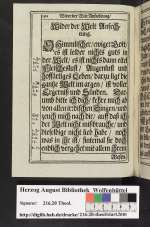 Wider der Welt Anfech-
tung.
O Himmlischer / ewiger Gott /
es ist leider nichts guts in
der Welt / es ist nichts dann eitel
Fleischeslust / Augenlust und
hoffärtiges Leben / darzu ligt die
gantze Welt im argen / ist voller
Ergernuß und Sünden.
und bitte ich dich / kehre mich ab
von allen irrdischen Dingen / und
zeuch mich nach dir / auf daß ich
der Welt nicht mißbrauche / und
dieselbige nicht lieb habe / noch
was in ihr ist / sintemal sie doch
endlich vergehet mit allem ihrem
Wesen.
Herzog August Bibliothek Wolfenbüttel
Signatur: 216.20 Theol.
http://diglib.hab.de/drucke/216-20-theol/start.htm